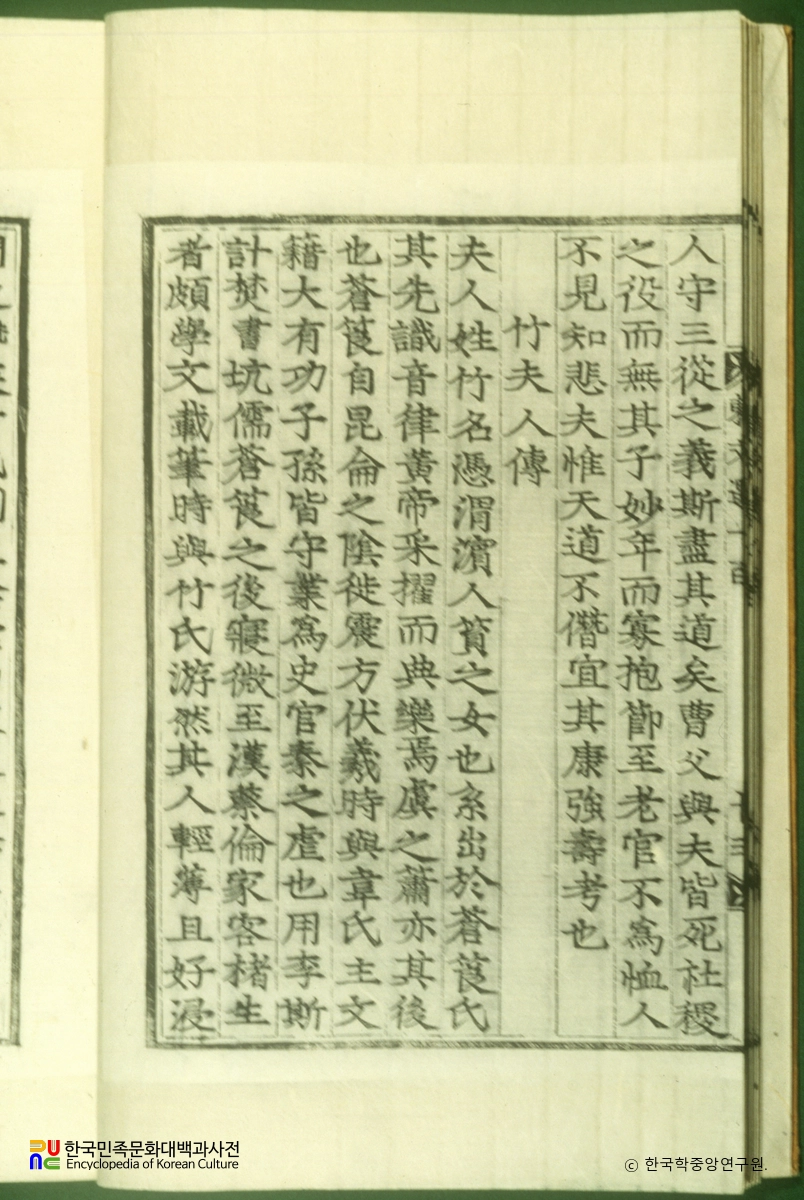 人守三從之義斯盡其道矣曹父與夫皆死社稷
之役而無其子妙年而寡抱節至老官不爲恤人
不見知悲夫惟天道不僭宜其康強壽考也
竹夫人傳
夫人姓竹名憑渭濱人篔之女也系出於蒼筤氏
其先識音律黃帝采擢而典樂焉虞之簫亦其後
也蒼筤自昆侖之陰徙震方伏羲時與韋氏主文
籍大有功子孫皆守業爲史官秦之虐也用李斯
計焚書坑儒蒼筤之後寢微至漢蔡倫家客楮生
者頗學文載筆時與竹氏游然其人輕薄且好浸
한국민족문화대백과사전
Encyclopedia of Korean Culture
ⓒ 한국학중앙연구원.